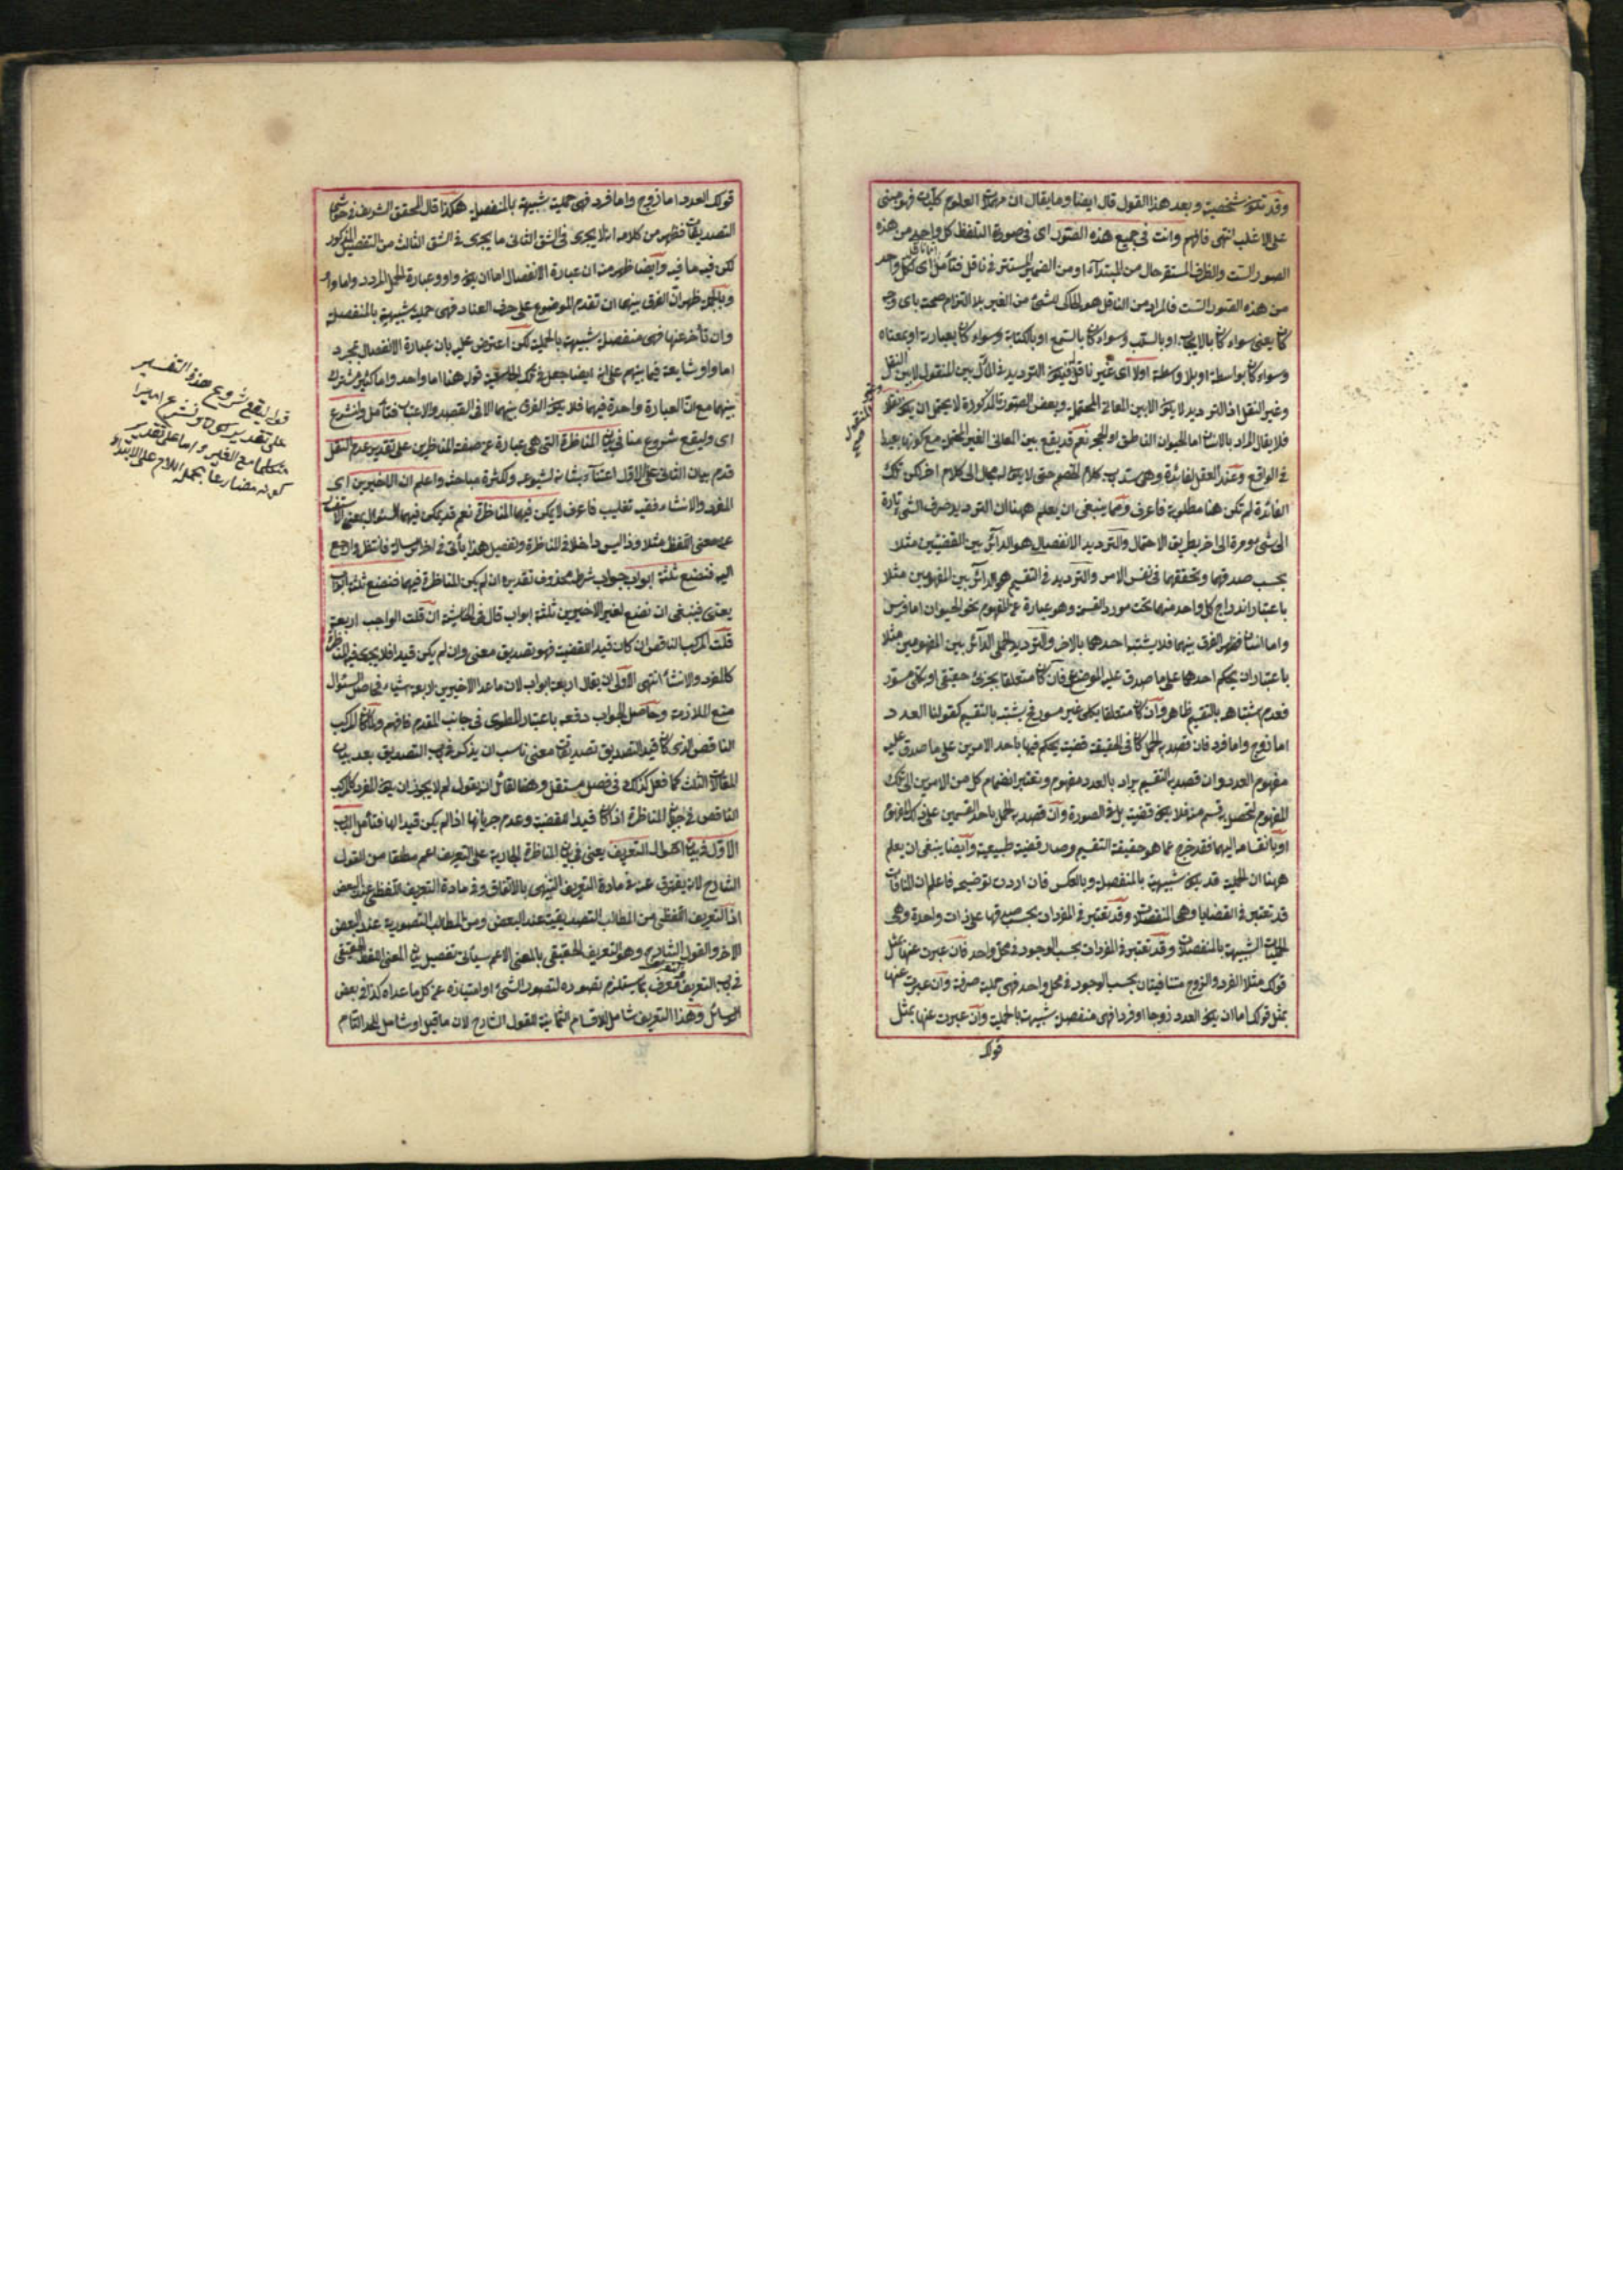 وقد تكون شخصية وبعد هذا القول قال ايضا وما يقال ان العلوم كليات فهو مبنى
على الاغلب انتهى فافهم وانت فى جميع هذه الصور اى فى صورة التلفظ كل واحد من هذه
الصور الست والظرف المستقر حال من المبتدأ او من الضمير المستتر فى ناقل فتأمل اى لكل واحد
من هذه الصور الست فالمراد من الناقل هو الحاكى لشئ من الغير بلا التزام صحته باى وجه
كان يعنى سواء كان بالايجاب او بالسلب وسواء كان بالسمع او بالكتابة وسواء كان بعبارته او بمعناه
وسواء كان بواسطة او بلا واسطة اولا اى غير ناقل فيكون الترديد فى المآل بين المنقول لا بين النقل
وغير النقل اذ الترديد لا يكون الا بين المعانى المحتملة وبعض الصور المذكورة لا يحتمل ان يكون
فلا يقال المراد بالانسان اما الحيوان الناطق او الحجر نعم قد يقع بين المعانى الغير المحتمل مع كونه بعيدا
فى الواقع وعند العقل لفائدة وهى سد باب كلام الخصم حتى لا يكون له مجال الى كلام اخر لكن تلك
الفائدة لم تكن هنا مطلوبة فاعرف ومما ينبغى ان يعلم ههنا ان الترديد صرف الشئ تارة
الى شئ ومرة الى اخر بطريق الاحتمال والترديد الانفصالى هو الدائر بين القضيتين مثلا
بحسب صدقهما وتحققهما فى نفس الامر والترديد فى التقسيم هو الدائر بين المفهومين مثلا
باعتبار اندراج كل واحد منهما تحت مورد القسمة وهو عبارة عن المفهوم نحو الحيوان اما فرس
واما انسان فظهر الفرق بينهما فلا يشتبه احدهما بالاخر والترديد الحملى الدائر بين المفهومين مثلا
باعتبار ان يحكم احدهما على ما صدق عليه الموضوع فان كان متعلقا بجزئى حقيقى او بكلى مسور
فعدم اشتباهه بالتقسيم ظاهر وان كان متعلقا بكلى غير مسور فيشتبه بالتقسيم كقولنا العدد
اما زوج واما فرد فان قصد به الحمل كان فى الحقيقة قضية يحكم فيها باحد الامرين على ما صدق عليه
مفهوم العدد وان قصد به التقسيم يراد بالعدد مفهومه ويعتبر انضمام كل من الامرين الى ذلك
المفهوم ليحصل قسم منه فلا يكون قضية بل فى الصورة وان قصد به الحمل باحد القسمين على ذلك المفهوم
او بانقسامه اليهما فقد خرج عما هو حقيقة التقسيم وصار قضية طبيعية وايضا ينبغى ان يعلم
ههنا ان الحملية قد يكون شبيهة بالمنفصلة وبالعكس فان اردت توضيحه فاعلم ان المنافات
قد تعتبر فى القضايا وهى المنفصلات وقد تعتبر فى المفردات بحسب صدقها على ذات واحدة وهى
الحمليات الشبيهة بالمنفصلات وقد تعتبر فى المفردات بحسب الوجود فى محل واحد فان عبرت عنها بمثل
قولك مثلا الفرد والزوج متنافيتان بحسب الوجود فى محل واحد فهى حملية صرفة وان عبرت عنها
بمثل قولك اما ان يكون العدد زوجا او فردا فهى منفصلة شبيهة بالحملية وان عبرت عنها بمثل
قولك
قولك العدد اما زوج واما فرد فهى حملية شبيهة بالمنفصلة هكذا قال المحقق الشريف فى حواشى
التصديقات فظهر من كلامه انه لا يجرى فى الشق الثانى ما يجرى فى الشق الثالث من التفصيل المذكور
لكن فيه ما فيه وايضا ظهر منه ان عبارة الانفصال اما ان يكون واو وعبارة الحمل المردد واما واو
وبالجملة ظهر ان الفرق بينهما ان تقدم الموضوع على حرف العناد فهى حملية شبيهة بالمنفصلة
وان تأخر عنها فهى منفصلة شبيهة بالحملية لكن اعترض عليه بان عبارة الانفصال بمجرد
اما واو شايعة فيما بينهم على انه ايضا جعل فى تلك الحاشية قولهم هذا اما واحد واما كثير مشترك
بينهما مع ان العبارة واحدة فيهما فلا يكون الفرق بينهما الا فى القصد والاعتبار فتأمل ولنشرع
اى وليقع شروع منا فى بيان المناظرة التى هى عبارة عن صفة المناظرين على تقدير عدم النقل
قدم بيان الثانى على الاول اعتناء بشانه لشيوعه ولكثرة مباحثه واعلم ان الاخيرين اى
المفرد والانشاء ففيه تغليب فاعرف لا يكون فيهما المناظرة نعم قد يكون فيهما السؤال بمعنى الاستفسار
عن معنى اللفظ مثلا وذا ليس داخلا فى المناظرة وتفصيل هذا يأتى فى اخر الرسالة فانتظر وارجع
اليه فنضع ثلثة ابواب جواب شرط محذوف تقديره ان لم يكن المناظرة فيهما فنضع ثلثة ابواب
يعنى فينبغى ان نضع لغير الاخيرين ثلثة ابواب قال فى الحاشية ان قلت الواجب اربعة
قلت المركب الناقص ان كان قيدا للقضية فهو تصديق معنى وان لم يكن قيدا فلا يجرى فيه المناظرة
كالمفرد والانشاء انتهى الاولى ان يقال اربعة ابواب لان ما عدا الاخيرين اربعة اشياء فحاصل السؤال
منع الملازمة وحاصل الجواب دفعه باعتبار المطوى فى جانب المقدم فافهم ولما كان المركب
الناقص الذى كان قيد التصديق تصديقا معنى ناسب ان يذكر فى باب التصديق بعد بيان
المقالات الثلث كما فعل كذلك فى فصل مستقل وههنا لقائل ان يقول لم لا يجوز ان يكون المفرد كالمركب
الناقص فى جريان المناظرة اذا كان قيدا للقضية وعدم جريانها اذا لم يكن قيدا لها فتأمل الباب
الاول فى بيان احوال التعريف يعنى فى بيان المناظرة الجارية على التعريف اعم مطلقا من القول
الشارح لانه يفترق عنه فى مادة التعريف التنبيهى بالاتفاق وفى مادة التعريف اللفظى عند البعض
اذ التعريف اللفظى من المطالب التصديقية عند البعض ومن المطالب التصورية عند البعض
الاخر والقول الشارح وهو التعريف الحقيقى بالمعنى الاعم سيأتى تفصيل المعنى اللفظى الحقيقى
فى باب التعريف معرف بما يستلزم تصوره لتصور الشئ او امتيازه عن كل ما عداه كذا فى بعض
الرسائل وهذا التعريف شامل للاقسام الثمانية للقول الشارح لان ما قبل او شامل للحد التام
قوله ليقع شروع هذا التفسير
على تقدير كون ولنشرع امرا
متكلما مع الغير واما على تقدير
كونه مضارعا يحمل اللام على الابتداء